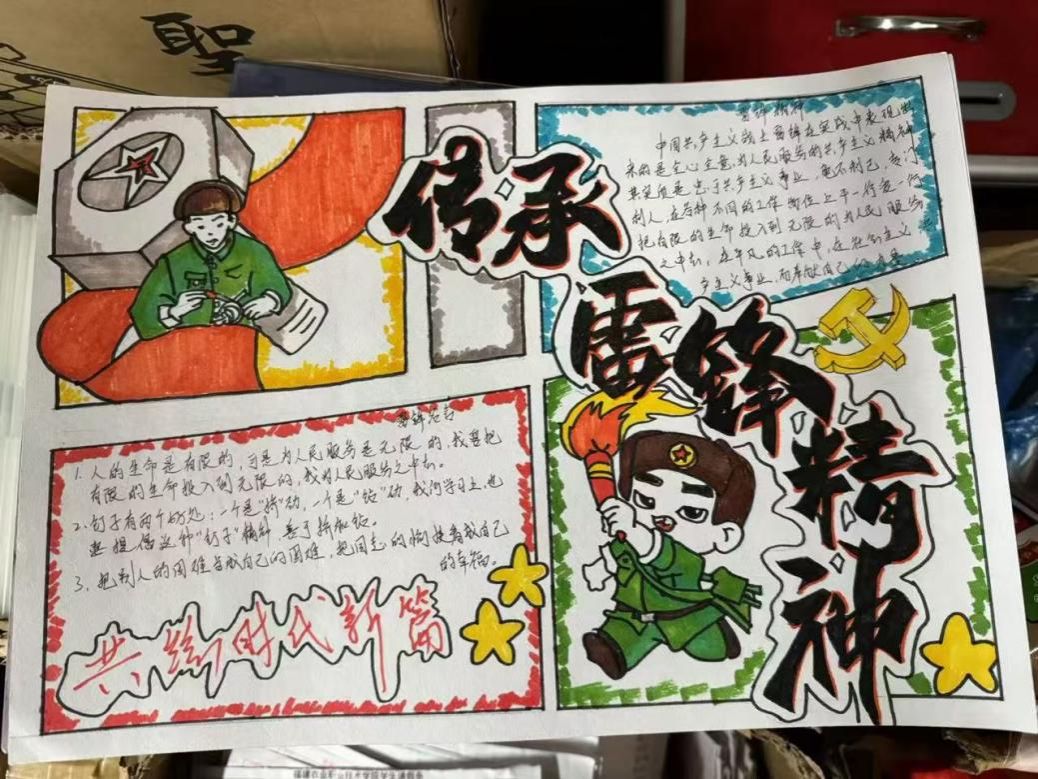 聖
传承
雷锋
精神
雷锋精神
中国共产主义战士雷锋在实践中表现出
来的是全心全意为人民服务的共产主义精神
其实质是忠于共产主义事业，毫不利己，专门
利人，在各种不同的工作岗位上干一行爱一行
把有限的生命投入到无限的为人民服务
之中去，在平凡的工作中，在社会主义
产主义事业，而奉献自己
雷锋名言
1. 人的生命是有限的，可是为人民服务是无限的，我要把
有限的生命投入到无限的，我为人民服务之中去。
2. 钉子有两个好处：一个是“挤”劲，一个是“钻”劲，我们学习上，也
要提倡这种“钉子”精神，善于挤和钻。
3. 把别人的困难当成自己的困难，把同志的愉快看成自己
的幸福。
共绘时代新篇